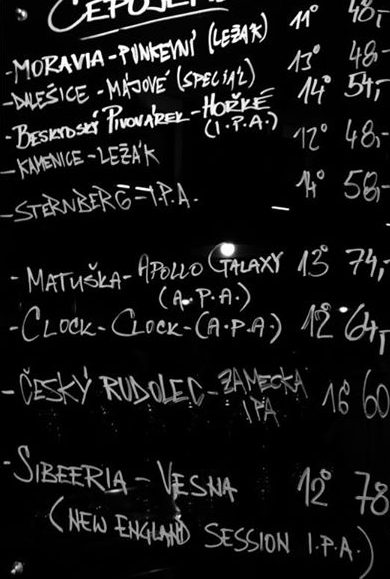 ČEPUJEME
- MORAVIA - PUNKEVNÍ (LEŽÁK) 11° 48,-
- DALEŠICE - MÁJOVÉ (SPECIÁL) 13° 48,-
- BESKYDSKÝ PIVOVÁREK - HOŘKÉ 14° 54,-
(I.P.A.)
- KAMENICE - LEŽÁK 12° 48,-
- STERNBERG - I.P.A. 14° 58,-
- MATUŠKA - APOLLO GALAXY 13° 74,-
(A.P.A.)
- CLOCK - CLOCK - (A.P.A.) 12° 64,-
- ČESKÝ RUDOLEC - ZÁMECKÁ 16° 60
IPA
- SIBEERIA - VESNA 12° 78
(NEW ENGLAND SESSION I.P.A.)